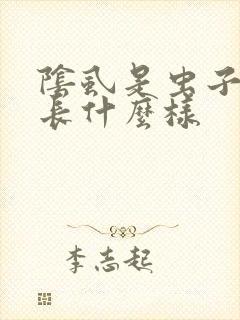 陰虱是虫子
長什麼樣
李志起